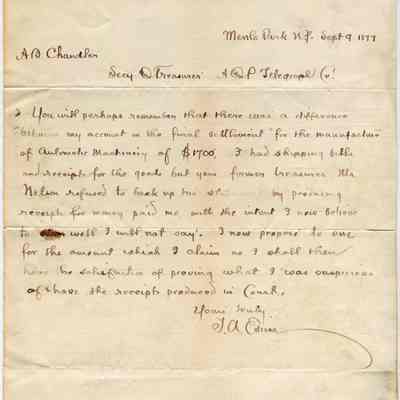 Menlo Park N.J. Sept 9 1877
A B Chandler
Secy & Treasurer A & P Telegraph Co.
You will perhaps remember that there was a difference
between my account in the final settlement for the manufacture
of Automatic Machinery of $1700. I had shipping bills
and receipts for the goods but your former treasurer Mr
Nelson refused to by producing
receipts for money paid me with the intent I now believe
to well I will not say. I now propose to sue
for the amount which I claim as I shall then
have the satisfaction of proving what I was suspicious
of & have the receipts produced in Court.
Yours truly
T. A. Edison